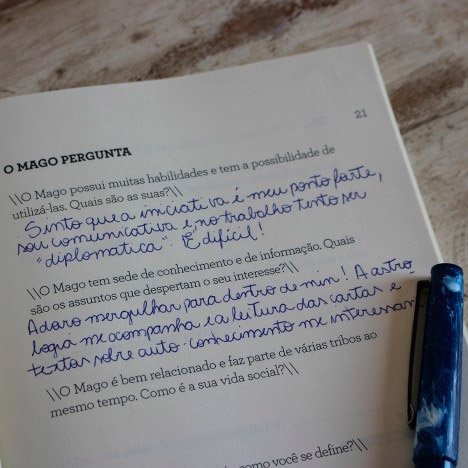 21
O MAGO PERGUNTA
\\O Mago possui muitas habilidades e tem a possibilidade de
utilizá-las. Quais são as suas?\\
Sinto que a iniciativa é meu ponto forte,
sou comunicativa e no trabalho tento ser
"diplomática". É difícil!
\\O Mago tem sede de conhecimento e de informação. Quais
são os assuntos que despertam o seu interesse?\\
Adoro mergulhar para dentro de mim! A astro
logia me acompanha e a leitura das cartas e
textos sobre auto-conhecimento me interessam
\\O Mago é bem relacionado e faz parte de várias tribos ao
mesmo tempo. Como é a sua vida social?\\
como você se define?\\